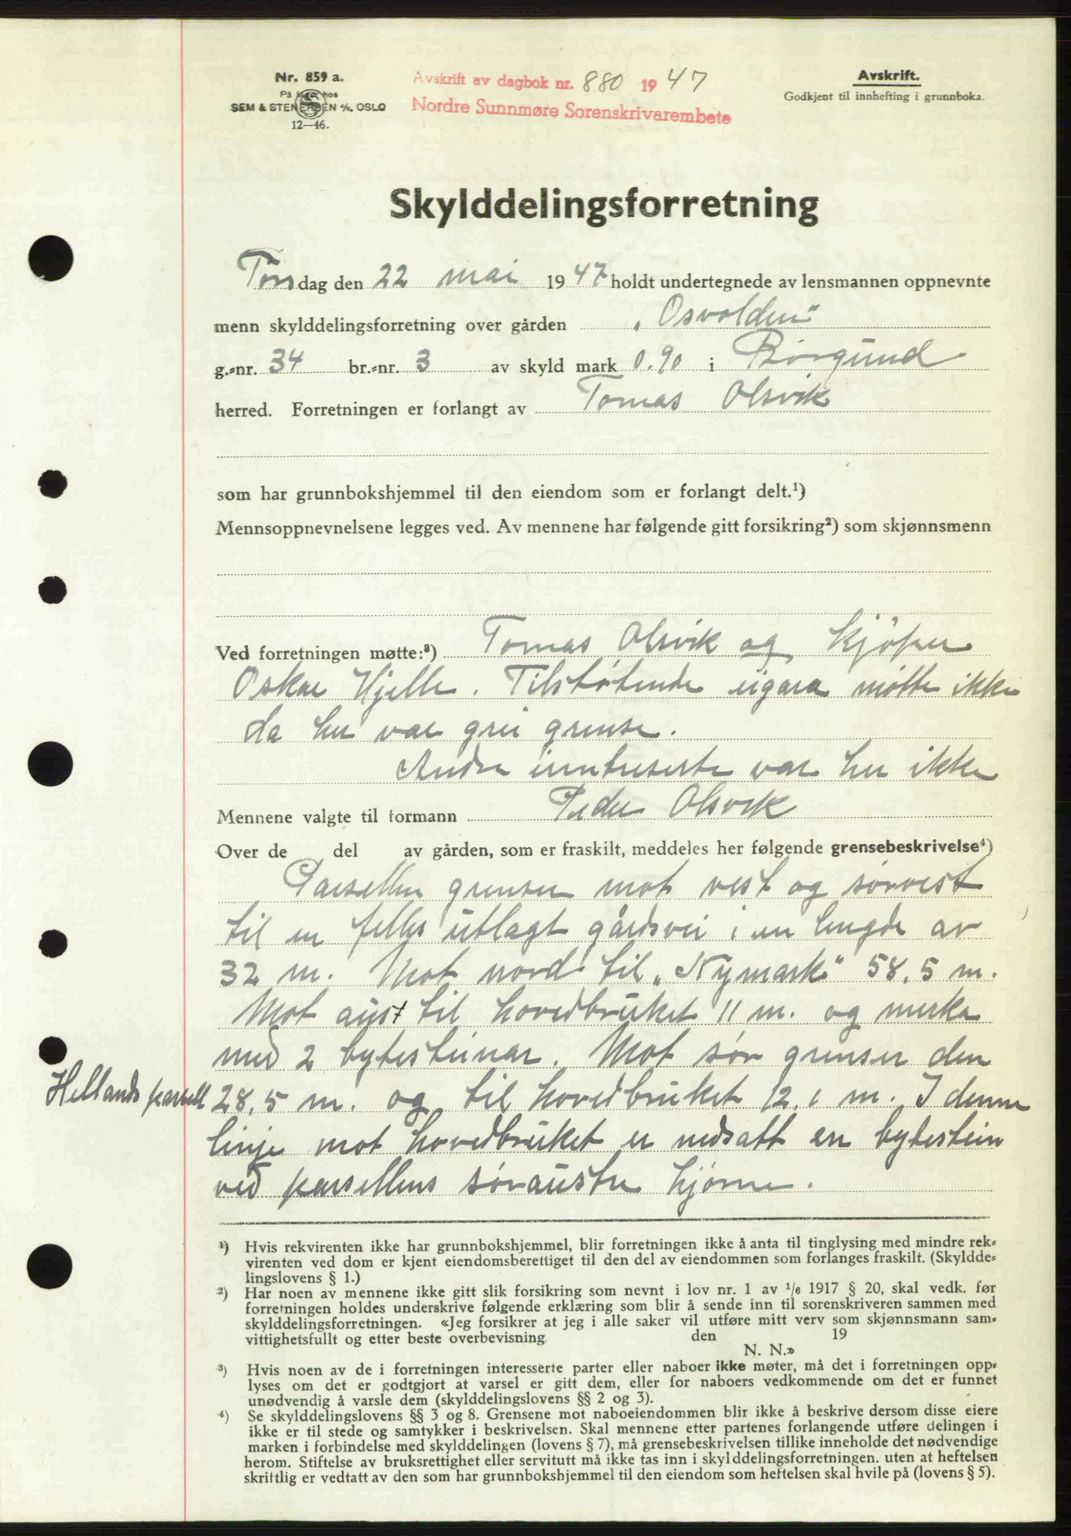 Nr. 859 a.
På lager hos
SEM & STENERSEN A/S, OSLO
12—46.
Avskrift av dagbok nr. 880 1947
Nordre Sunnmøre Sorenskrivarembete
Avskrift.
Godkjent til innhefting i grunnboka.
Skylddelingsforretning
Torsdag den 22 mai 1947 holdt undertegnede av lensmannen oppnevnte
menn skylddelingsforretning over gården „Osvolden"
g.-nr. 34 br.-nr. 3 av skyld mark 0.90 i Borgund
herred. Forretningen er forlangt av Tomas Olsvik
som har grunnbokshjemmel til den eiendom som er forlangt delt.¹)
Mennsoppnevnelsene legges ved. Av mennene har følgende gitt forsikring²) som skjønnsmenn
Ved forretningen møtte:³) Tomas Olsvik og kjöper
Oskar Hjelle. Tilstøtende eigara møtte ikke
da her var grei grense.
Andre interiserte var her ikke
Mennene valgte til formann Peder Olsvik
Over de del av gården, som er fraskilt, meddeles her følgende grensebeskrivelse⁴)
Parsellen grenser mot vest og sørvest
til en felles utlagt gårdsvei i en lengde av
32 m. Mot nord til „Nymark" 58,5 m.
Mot aust til hovedbruket 11 m. og merka
med 2 bytesteinar. Mot sør grenser den
Hellands parsell 28,5 m. og til hovedbruket 12,1 m. I denne
linje mot hovedbruket er nedsatt en bytestein
ved parsellens søraustre hjørne.
¹) Hvis rekvirenten ikke har grunnbokshjemmel, blir forretningen ikke å anta til tinglysing med mindre rek-
virenten ved dom er kjent eiendomsberettiget til den del av eiendommen som forlanges fraskilt. (Skyldde-
lingslovens § 1.)
²) Har noen av mennene ikke gitt slik forsikring som nevnt i lov nr. 1 av 1/6 1917 § 20, skal vedk. før
forretningen holdes underskrive følgende erklæring som blir å sende inn til sorenskriveren sammen med
skylddelingsforretningen. «Jeg forsikrer at jeg i alle saker vil utføre mitt verv som skjønnsmann sam-
vittighetsfullt og etter beste overbevisning den 19
N. N.»
³) Hvis noen av de i forretningen interesserte parter eller naboer ikke møter, må det i forretningen opp-
lyses om det er godtgjort at varsel er gitt dem, eller for naboers vedkommende om det er funnet
unødvendig å varsle dem (skylddelingslovens §§ 2 og 3).
⁴) Se skylddelingslovens §§ 3 og 8. Grensene mot naboeiendommen blir ikke å beskrive dersom disse eiere
ikke er til stede og samtykker i beskrivelsen. Skal mennene etter partenes forlangende utføre delingen i
marken i forbindelse med skylddelingen (lovens § 7), må grensebeskrivelsen tillike inneholde det nødvendige
herom. Stiftelse av bruksrettighet eller servitutt må ikke tas inn i skylddelingsforretningen. uten at heftelsen
skriftlig er vedtatt av den som har grunnbokshjemmel til den eiendom som heftelsen skal hvile på (lovens § 5).